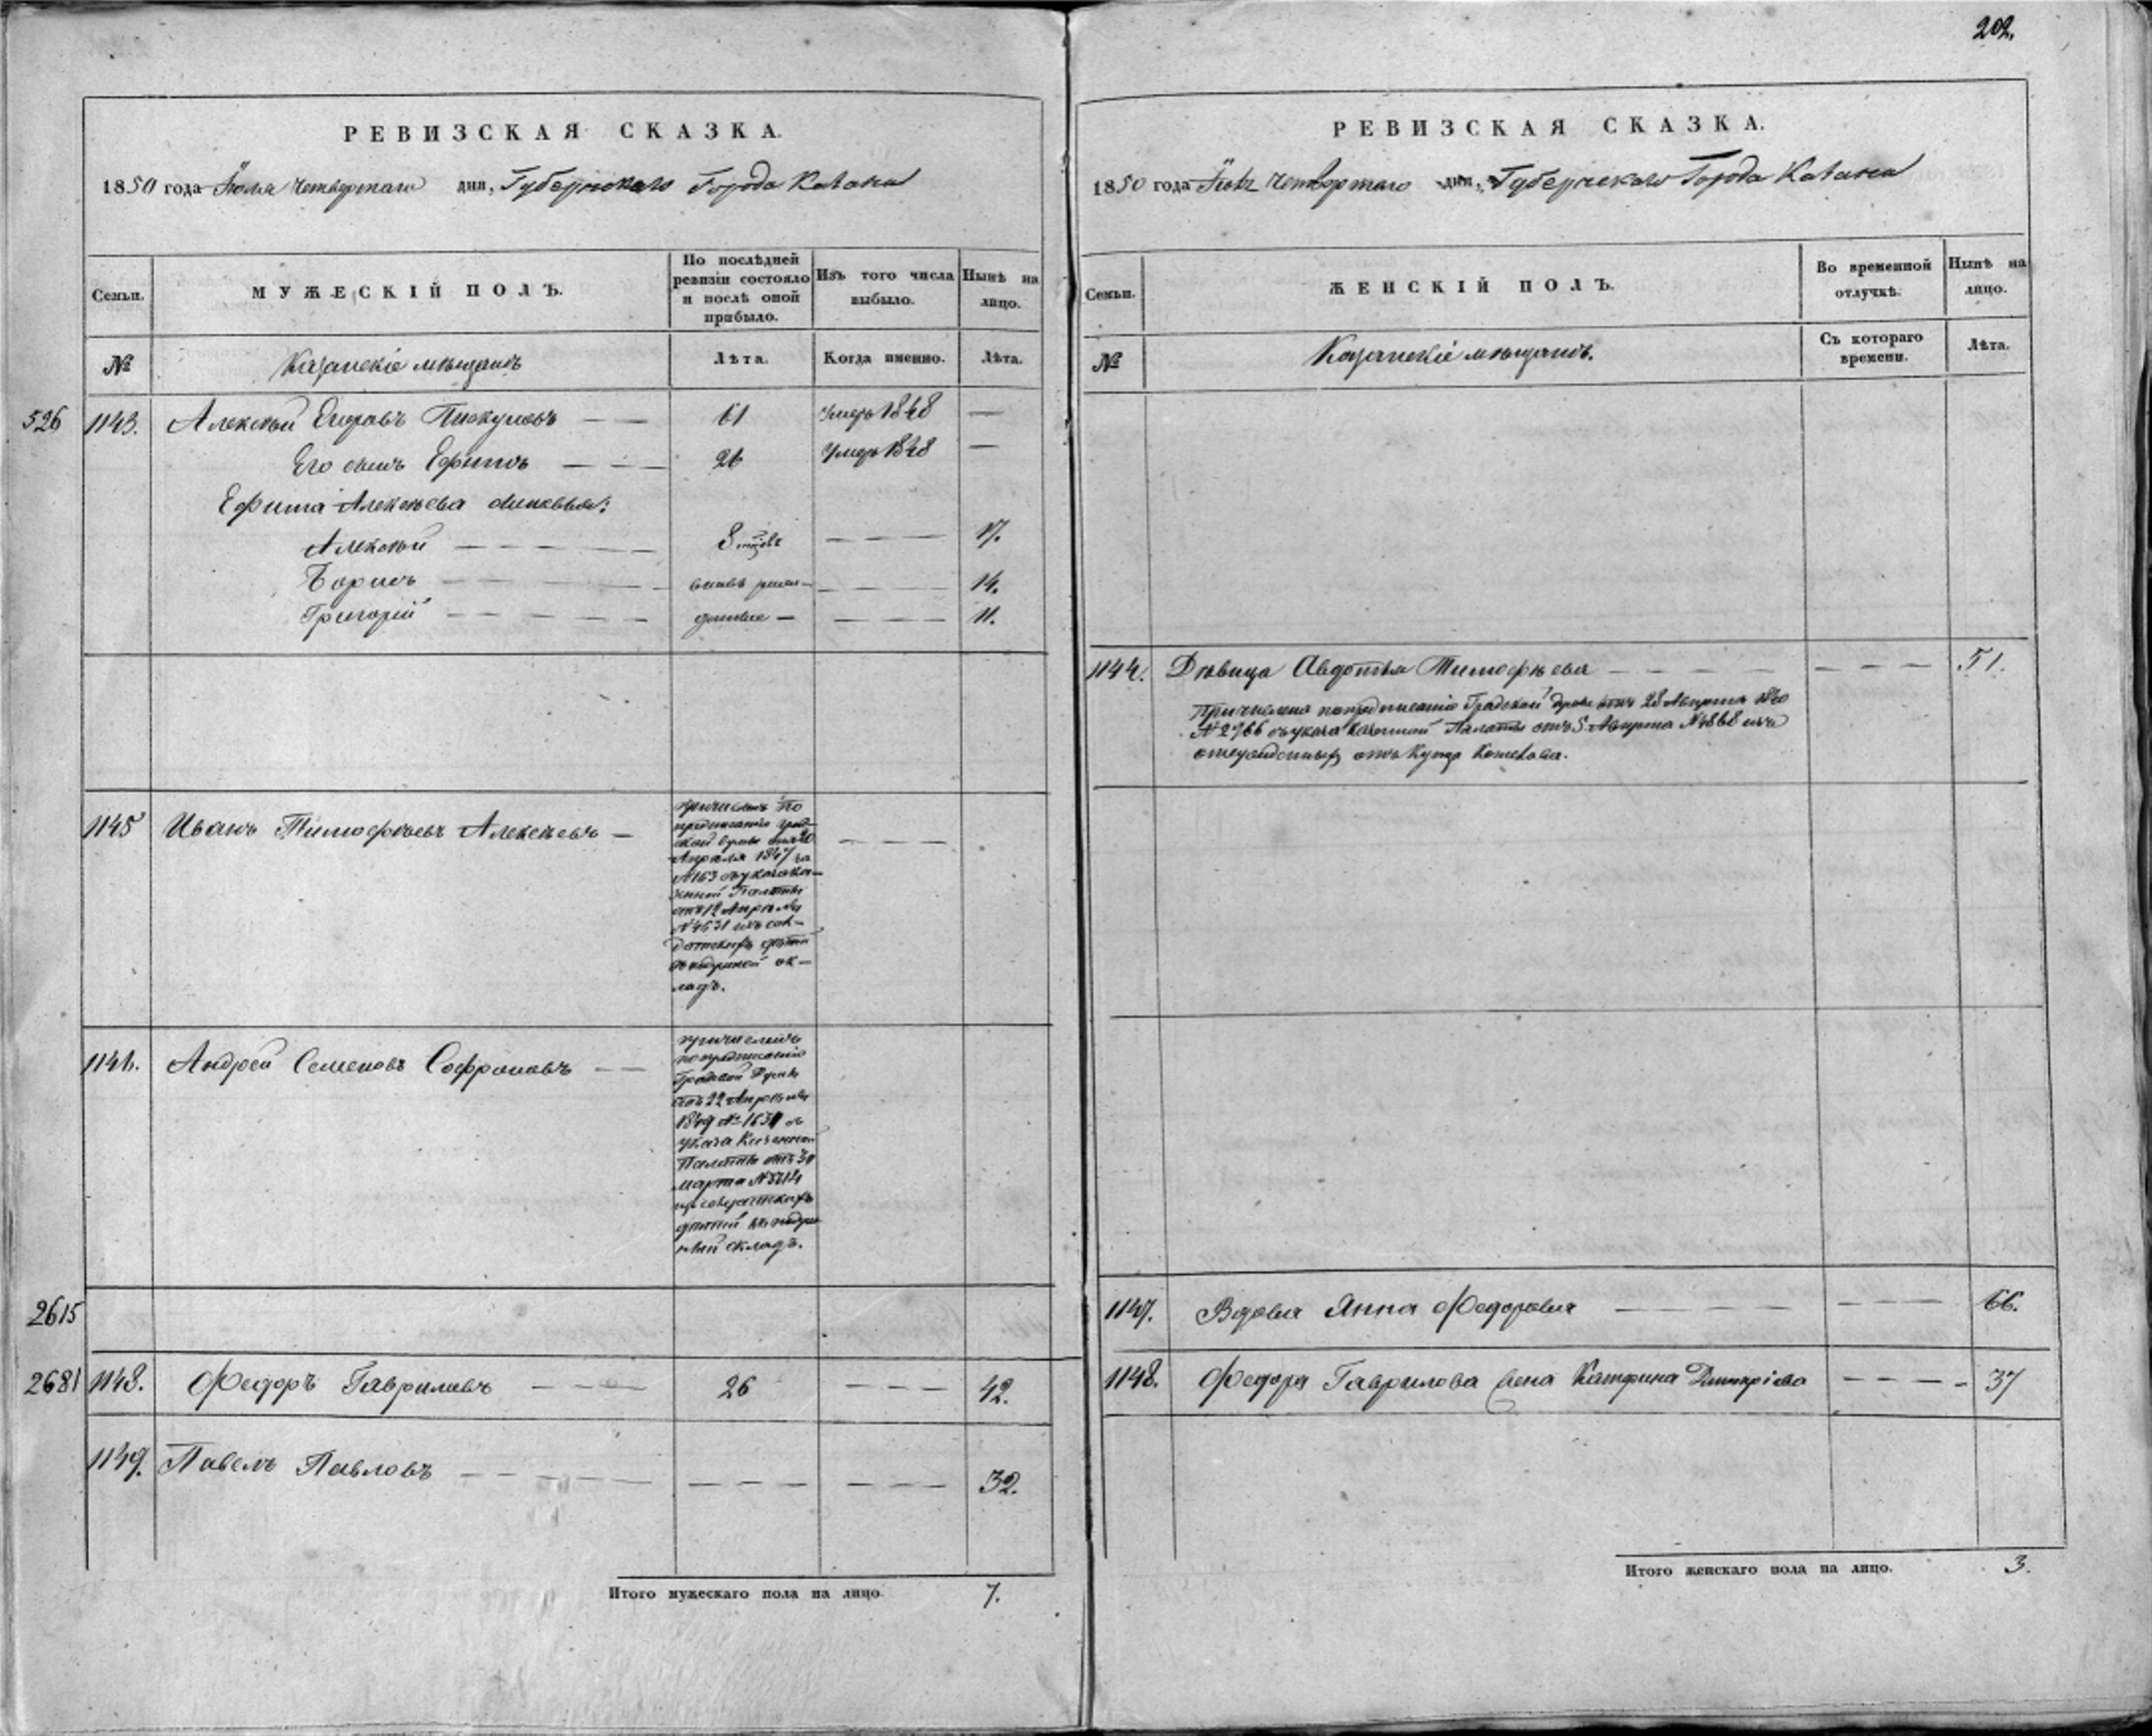 202.
РЕВИЗСКАЯ СКАЗКА.
1850 года Июля четвертаго дня, Губернскаго Города Казани
Семьи.
МУЖЕСКІЙ ПОЛЪ.
По послѣдней ревизіи состояло и послѣ оной прибыло.
Изъ того числа выбыло.
Нынѣ на лицо.
№
Казанскіе мѣщанъ
Лѣта.
Когда именно.
Лѣта.
526 1143. Алексѣй Егоровъ — — 61 Умеръ 1848 —
Его сынъ Ефимъ — — — 26 Умеръ 1848 —
Ефима Алексѣева сыновья:
Алексѣй — — — — 8 — — — 17.
Борисъ — — — — вновь рож— — — — 14.
Григорій — — — — денные — — — — 11.
1145 Иванъ Тимофѣевъ Алексѣевъ — — — —
причисленъ по
предписанію Град-
ской Думы отъ 20
Апрѣля 1847 за
№ 163 съ указа Ка-
зенной Палаты
отъ 12 Апрѣля
№ 4631 изъ сол-
датскихъ дѣтей
въ подушной ок-
ладъ.
1146. Андрей Семеновъ Софроновъ — —
причисленъ
по предписанію
Градской Думы
отъ 22 Апрѣля
1849 № 1631 съ
указа Казенной
Палаты отъ 30
марта №
изъ солдатскихъ
дѣтей въ подуш
ный окладъ.
2615
2681 1148. Федоръ Гавриловъ — — — 26 — — — 42.
1149. Павелъ Павловъ — — — — — — — — — — 32.
Итого мужескаго пола на лицо 7.
РЕВИЗСКАЯ СКАЗКА.
1850 года Июля четвертаго дня, Губернскаго Города Казани
Семьи.
ЖЕНСКІЙ ПОЛЪ.
Во временной отлучкѣ.
Нынѣ на лицо.
№
Казанскіе мѣщанъ.
Съ котораго времени.
Лѣта.
1144. Дѣвица Авдотья Тимофѣева — — — — — — — 51.
Причислена по предписанію Градской Думы отъ 28 Августа 1840
№ 2766 съ указа Казенной Палаты отъ 5 Августа № 4868 изъ
отпущенныхъ отъ Купца
1147. Вдова Анна Федорова — — — — — — — 66.
1148. Федора Гаврилова жена Катерина Дмитріева — — — — 37
Итого женскаго пола на лицо. 3.